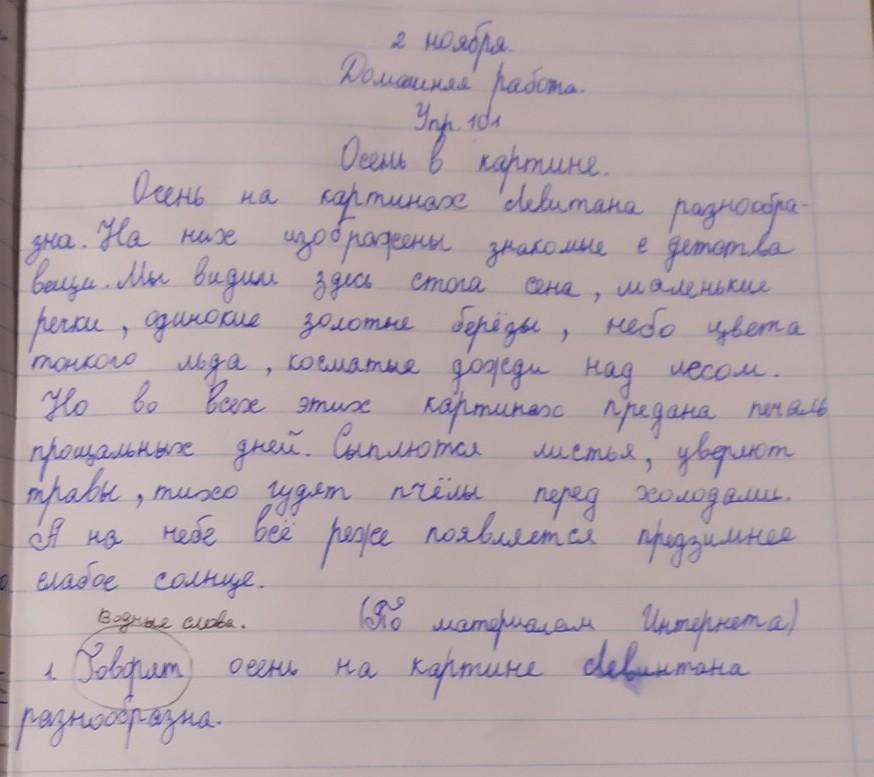 2 ноября.
Домашняя работа.
Упр. 101
Осень в картине.
Осень на картинах Левитана разнообра-
зна. На них изображены знакомые с детства
вещи. Мы видим здесь стога сена, маленькие
речки, одинокие золотые берёзы, небо цвета
тонкого льда, косматые дожди над лесом.
Но во всех этих картинах предана печаль
прощальных дней. Сыплются листья, уверяют
травы, тихо гудят пчёлы перед холодами.
А на небе всё реже появляется предзимнее
слабое солнце.
(По материалам Интернета)
Водные слова.
1. Говорят осень на картине Левинтана
разнообразна.